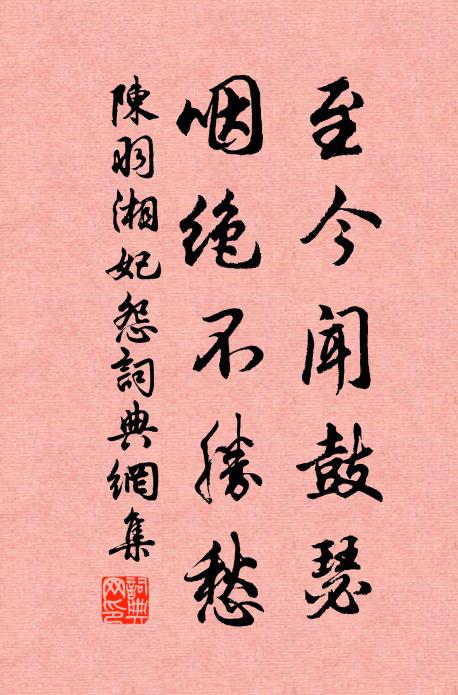 至今闻鼓瑟
咽绝不勝愁
陳羽湘妃怨詞典網集
詞典网印